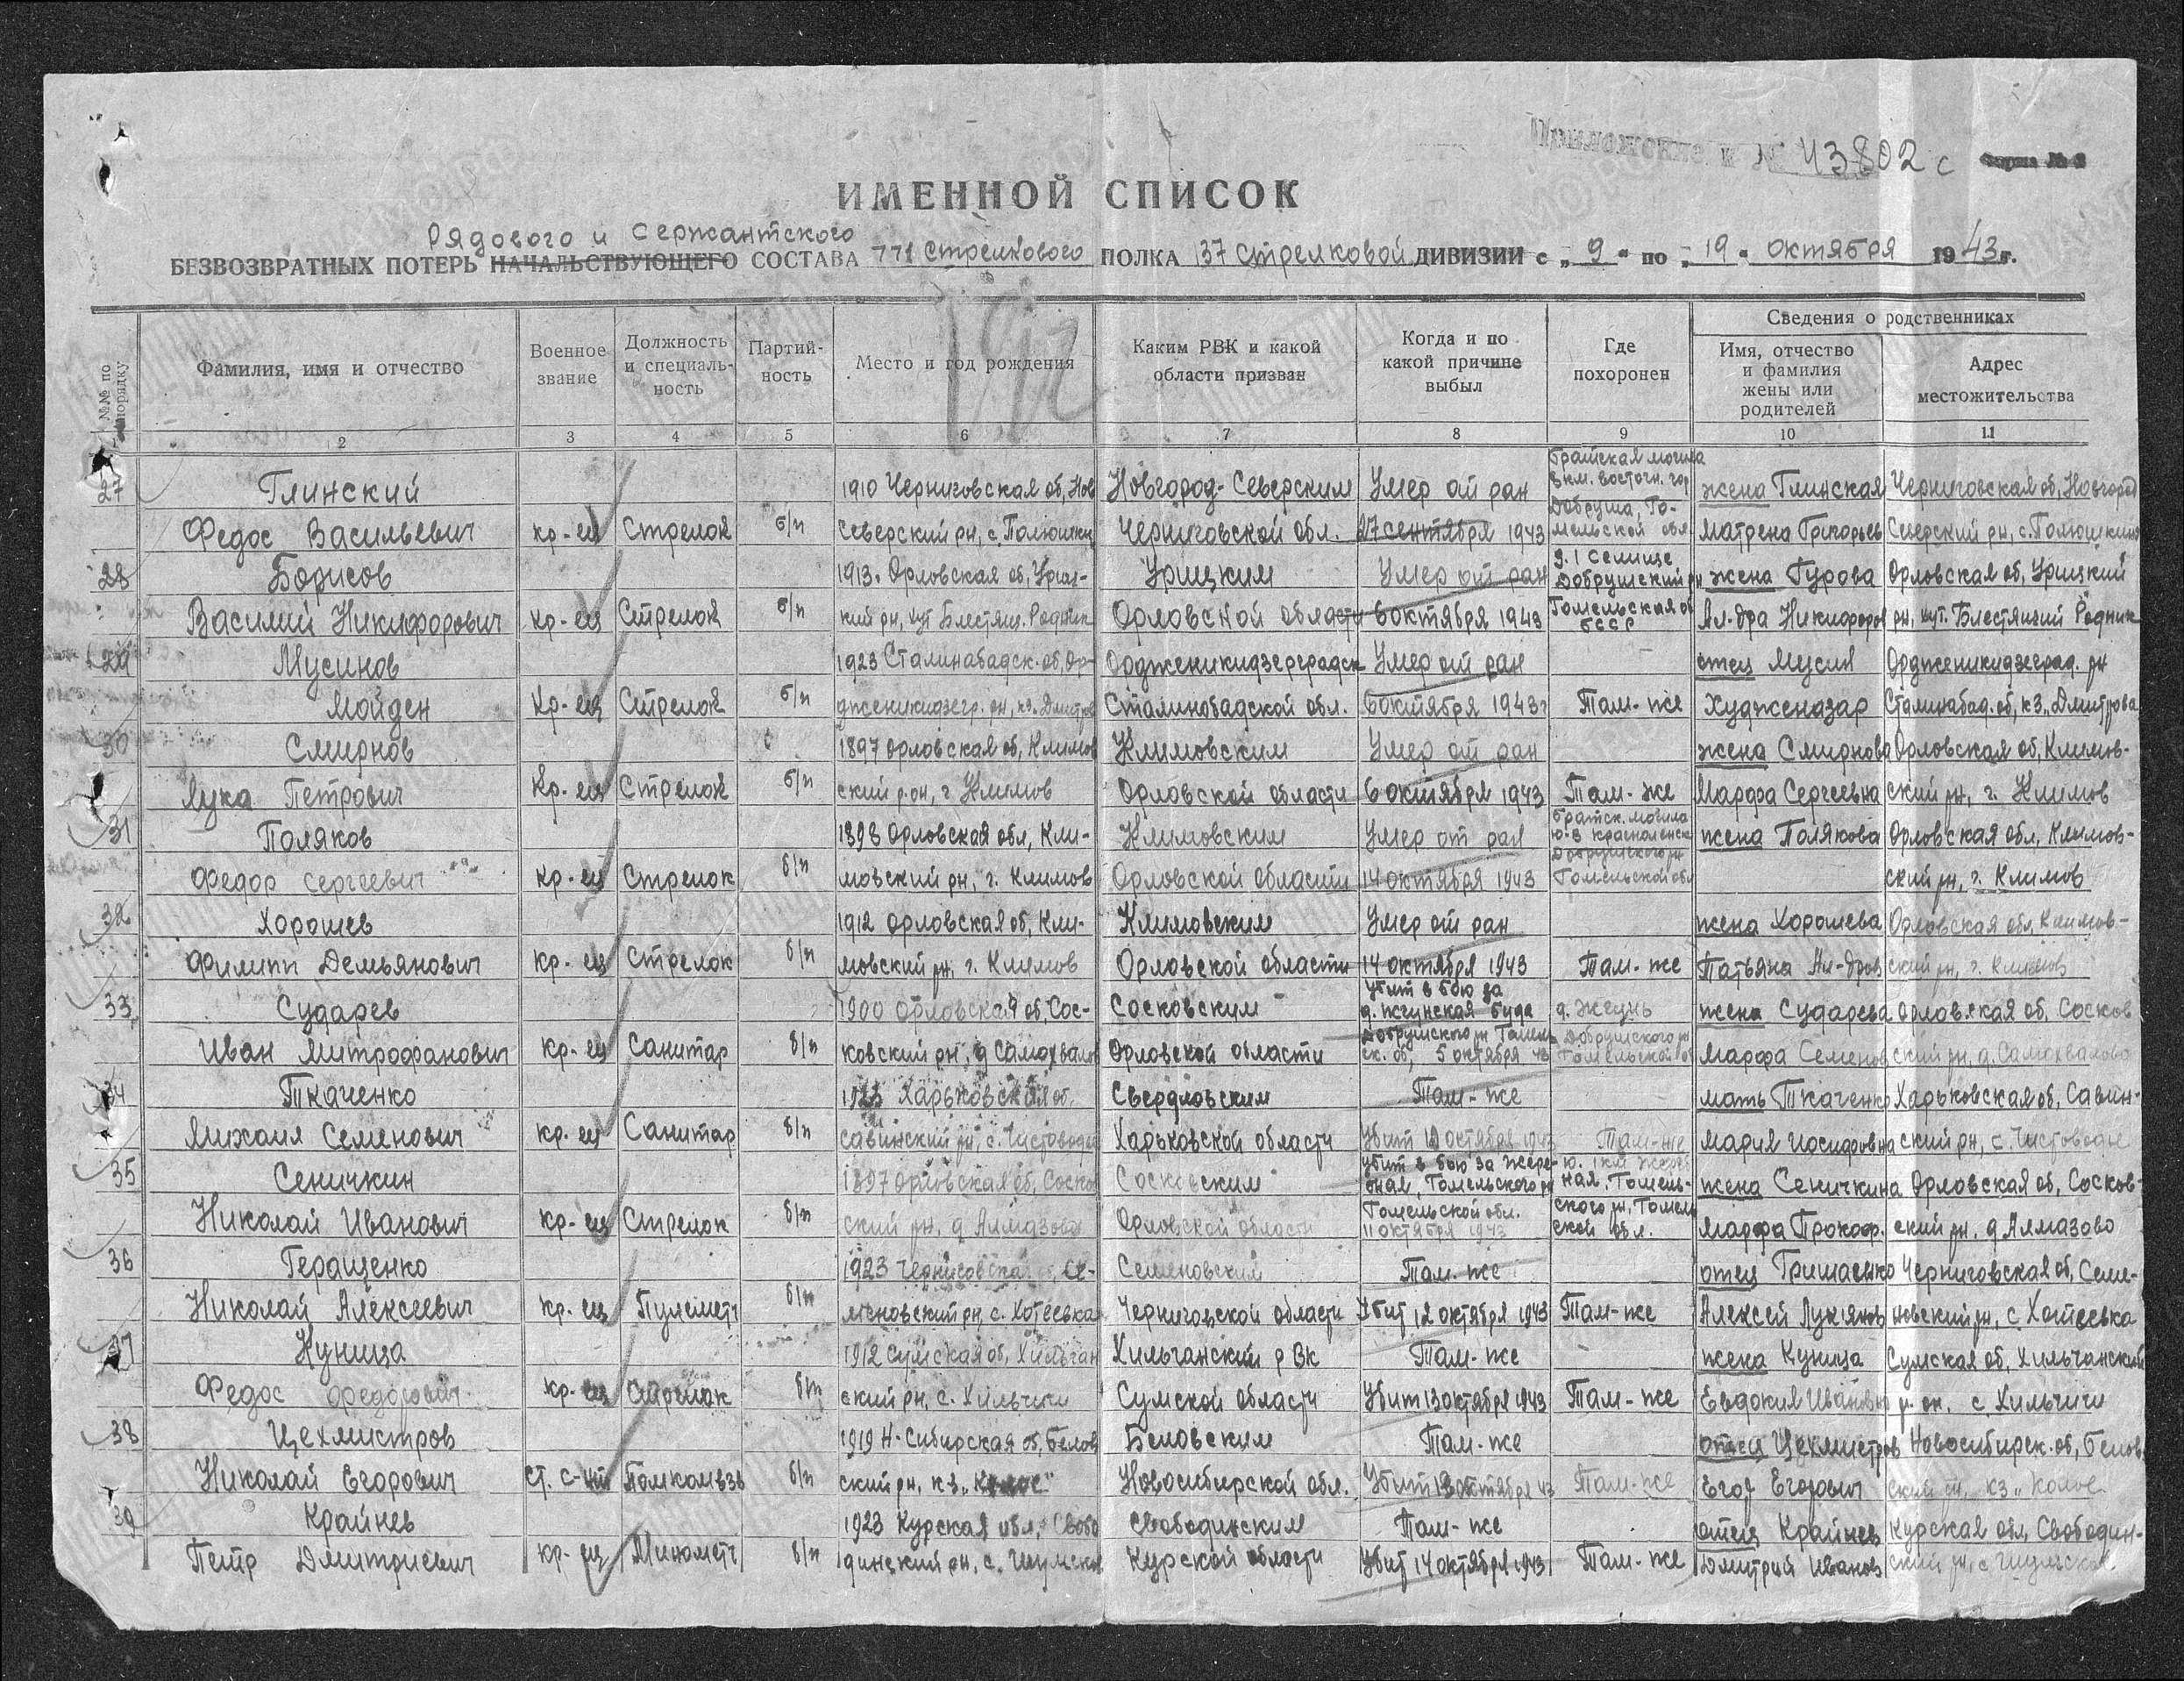 43802 с
ИМЕННОЙ СПИСОК
Рядового и Сержантского
БЕЗВОЗВРАТНЫХ ПОТЕРЬ НАЧАЛЬСТВУЮЩЕГО СОСТАВА 771 Стрелкового ПОЛКА 137 Стрелковой ДИВИЗИИ с „9" по „19" октября 1943г.
№№ по порядку
Фамилия, имя и отчество
Военное звание
Должность и специальность
Партийность
Место и год рождения
Каким РВК и какой области призван
Когда и по какой причине выбыл
Где похоронен
Сведения о родственниках
Имя, отчество и фамилия жены или родителей
Адрес местожительства
2 3 4 5 6 7 8 9 10 11
27 Глинский 1910 Черниговская об, Нов Новгород-Северским Умер от ран братская могила вкм. восточн. гор жена Глинская Черниговская об, Новгород
Федос Васильевич кр-ец Стрелок б/п Северский рн, с. Полюшкин Черниговской обл. 27 сентября 1943 Добруша, Гомельской обл Матрена Григорьев Северский рн, с. Полюшкино
28 Борисов 1913. Орловская об, Уриц- Урицким Умер от ран д. 1 Селище Добрушский рн жена Гурова Орловская об, Урицкий
Василий Никифорович кр-ец Стрелок б/п кий рн, хут Блестящ. Родник Орловской области 6 октября 1943 Гомельская об БССР Ал-дра Никифоров рн, хут. Блестящий Родник
29 Мусинов 1923 Сталинабадск. об, Ор- Ордженикидзеградск Умер от ран отец Мусин Ордженикидзеград. рн
Мойден кр-ец Стрелок б/п дженикидзегр. рн, кз. Дмитров Сталинобадской обл. 6 октября 1943г Там-же Худженазар Сталинабад. об, кз „Дмитрова
30 Смирнов 1897 Орловская об, Климов Климовским Умер от ран жена Смирнова Орловская об, Климов-
Лука Петрович кр-ец Стрелок б/п ский р-он, г. Климов Орловской области 6 октября 1943 Там-же Марфа Сергеевна ский рн, г. Климов
31 Поляков 1898 Орловская обл, Кли- Климовским Умер от ран братск. могила ю-в жена Полякова Орловская обл, Климов-
Федор Сергеевич кр-ец Стрелок б/п мовский рн, г. Климов Орловской области 14 октября 1943 Добрушского рн Гомельской обл ский рн, г. Климов
32 Хорошев 1912 Орловская об, Кли- Климовским Умер от ран жена Хорошева Орловская обл, Климов-
Филипп Демьянович кр-ец Стрелок б/п мовский рн, г. Климов Орловской области 14 октября 1943 Там-же Татьяна Ал-дров ский рн, г. Климов
33 Сударев 1900 Орловская об, Сос- Сосковским Убит в бою за д. Жгунская Буда д. Жгунь жена Сударева Орловская об, Сосков
Иван Митрофанович кр-ец Санитар б/п ковский рн, д Самохвалов Орловской области Добрушского рн Гомельск. об, 5 октября 43 Добрушского рн Гомельской об Марфа Семенов ский рн, д. Самохвалово
34 Ткаченко 1923 Харьковская об. Свердловским Там-же мать Ткаченко Харьковская об, Савин-
Михаил Семенович кр-ец Санитар б/п савинский рн, с. Чистоводы Харьковской области Убит 10 октября 1943 Там-же Мария Иосифовна ский рн, с. Чистоводы
35 Сеничкин 1897 Орловская об, Соско Сосковским Убит в бою за Жеребная, Гомельского рн ю. 1 км Жеребная, Гомель- жена Сеничкина Орловская об, Сосков-
Николай Иванович кр-ец Стрелок б/п ский рн, д Алмазово Орловской области Гомельской обл. 11 октября 1943 ского рн, Гомельской обл. Марфа Прокоф. ский рн, д Алмазово
36 Геращенко 1923 Черниговская об, Се- Семеновским Там-же отец Гришаенко Черниговская об, Семе-
Николай Алексеевич кр-ец Пулеметч б/п меновский рн, с. Хотеевка Черниговской области Убит 12 октября 1943 Там-же Алексей Лукьянов новский рн, с. Хотеевка
37 Куница 1912 Сумская об, Хильчан Хильчанский рвк Там-же жена Куница Сумская об, Хильчанский
Федос Федорович кр-ец Стрелок б/п ский рн, с. Хильчичи Сумской области Убит 13 октября 1943 Там-же Евдокия Ивановна р-он, с. Хильчичи
38 Цехмистров 1919 Н-Сибирская об, Белов Беловским Там-же отец Цехмистров Новосибирск. об, Белов.
Николай Егорович ст. с-нт Помкомвзв б/п ский рн, кз „Колос" Новосибирской обл. Убит 13 октября 43 Там-же Егор Егорович ский рн, кз „Колос
39 Крайнев 1923 Курская обл, Свобо Свободинским Там-же отец Крайнев Курская обл, Свободин-
Петр Дмитриевич кр-ец Минометч б/п динский рн, с. Шумская Курской области Убит 14 октября 1943 Там-же Дмитрий Иванов ский рн, с Шумская